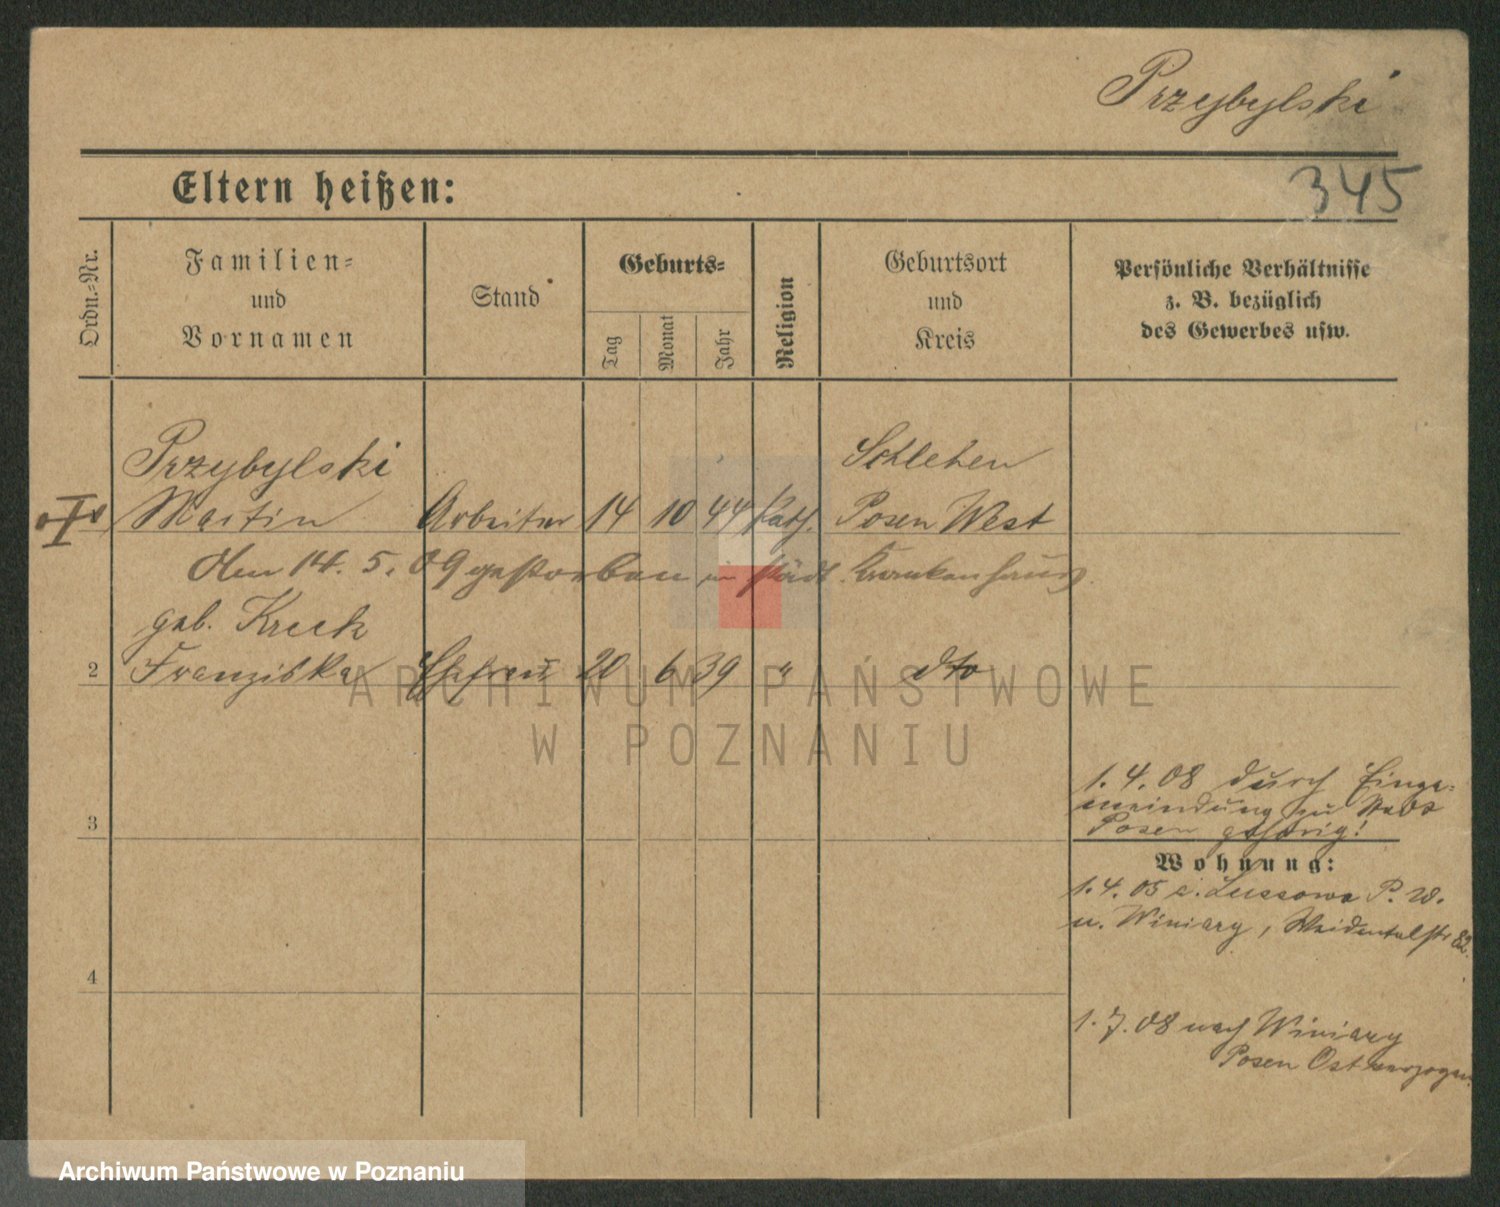 Przybylski
Eltern heißen:
345
Ordn.-Nr.
Familien-
und
Vornamen
Stand
Geburts-
Tag
Monat
Jahr
Religion
Geburtsort
und
Kreis
Persönliche Verhältnisse
z. B. bezüglich
des Gewerbes usw.
Przybylski
Martin Arbeiter 14 10 44 kath.
Schlehen
Posen West
den 14. 5. 09 gestorben im städt. Krankenhaus
geb.
2 Franziska Ehefrau 20 6 39 " dto
ARCHIWUM PAŃSTWOWE
W POZNANIU
3
1.4.08 durch Einge-
meindung zu Stadt
Posen gehörig!
Wohnung:
1.4.05 v. Lussowo P. W.
n. Winiary, Weidentalstr 82.
4
1.7.08 nach Winiary
Posen Ost verzogen.
Archiwum Państwowe w Poznaniu